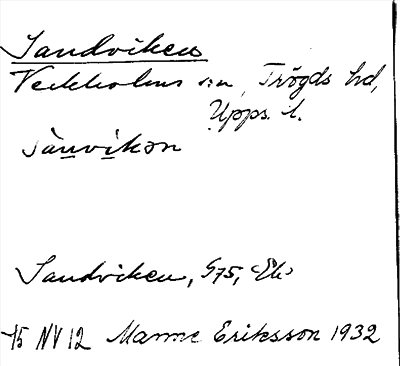 Sandviken
Veckholms sn, Trögds hd,
Upps. l.
sànvíkən
Sandviken, G75, Ek
75 NV 12 Manne Eriksson 1932